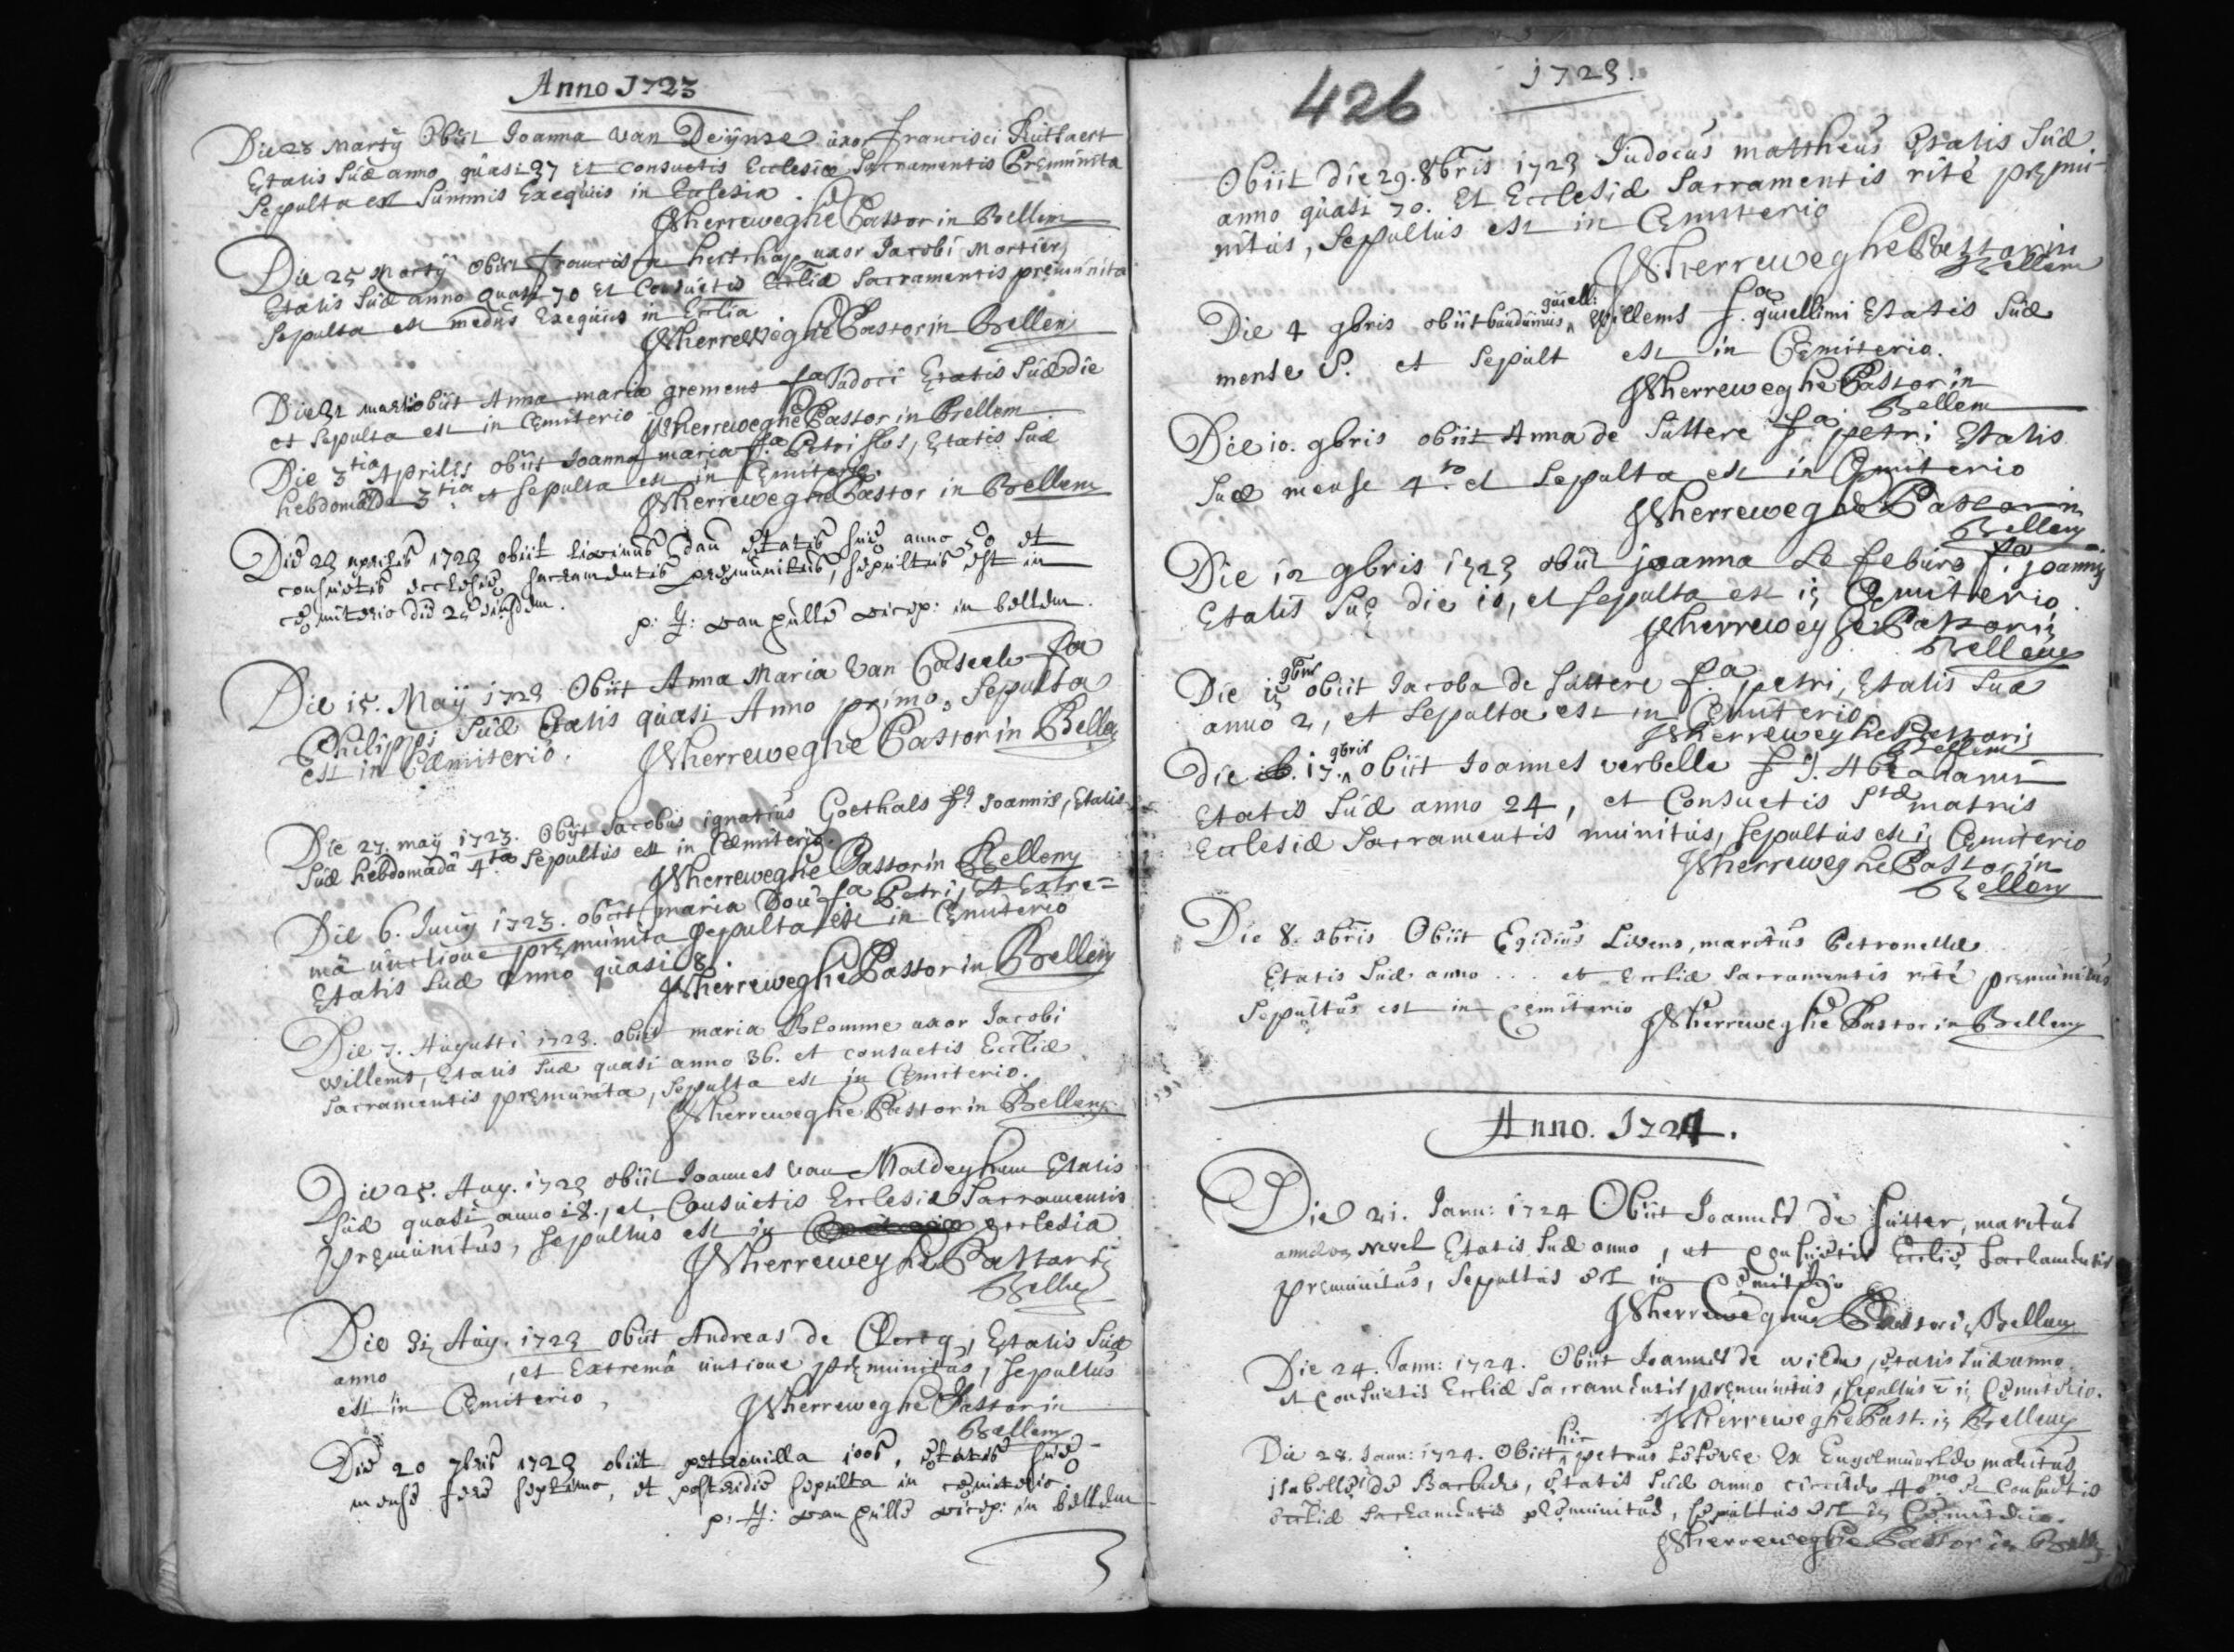 Anno 1723
Die 23 Martÿ Obiit Joanna van Deijnse uxor Francisci
Etatis Suæ anno quasi 37 et consuetis Ecclesiæ Sacramentis Premunita
Sepulta est Summis Exequiis in Ecclesia.
JVherreweghe Pastor in Bellem
Die 25 Martÿ obiit francisca uxor Jacobi Mortier
Etatis Suæ anno quasi 70 et Consuetis Ecclia Sacramentis premunita
Sepulta est mediis Exequiis in Ecclia
JVherreweghe Pastor in Bellem
obiit Anna maria gremens fa Judoci Etatis Suæ die
et Sepulta est in Cemiterio JVherreweghe Pastor in Bellem
Die 3tia Aprilis obiit Joanna maria fa Petri Etatis Suæ
hebdomada 3tia et sepulta est in Cemiterio.
JVherreweghe Pastor in Bellem
Die 23 aprilis 1723 obiit livinus dau etatis suæ anno 50 et
consuetis ecclesiæ sacramentis premunitus, sepultus est in
cemiterio die 25 eiusdem.
p: J: van pulle vicep: in bellem.
Die 15. Maij 1723 Obiit Anna Maria Van Caseele fa
Philippi Suæ Etatis quasi Anno primo, Sepulta
est in Cæmiterio. JVherreweghe Pastor in Bellem
Die 27. maij 1723. Obijt Jacobus ignatius Goethals fs Joannis, Etatis
Suæ hebdomadâ 4ta Sepultus est in Cæmiterio.
JVherreweghe Pastor in Bellem
Die 6. Junij 1723. obiit maria fa Petri, et Extre=
mâ unctione premunita Sepulta est in Cemiterio
Etatis Suæ anno quasi 8.
JVherreweghe Pastor in Bellem
Die 7. Augusti 1723. obiit maria Bolomme uxor Jacobi
Willems, Etatis Suæ quasi anno 36. et consuetis Eccliæ
Sacramentis premunita, Sepulta est in Cemiterio.
JVherreweghe Pastor in Bellem
Die 25. Aug. 1723 obiit Joannes van Maldeghem Etatis
Suæ quasi anno 18., et Consuetis Ecclesiæ Sacramentis
premunitus, sepultus est in ecclesia
JVherreweghe Pastor in
Bellem
Die 31 Aug. 1723 obiit Andreas de Clercq, Etatis Suæ
anno , et Extremâ untione premunitus, sepultus
est in Cemiterio, JVherreweghe Pastor in
Bellem
Die 20 7bris 1723 obiit petronilla ioos, etatis suæ
mense fere septimo, et postridie sepulta in cemiterio.
p: J: van pulle vicep: in bellem
426
1723.
Obiit die 29. 8bris 1723 Judocus mattheus Etatis Suæ
anno quasi 70. Et Ecclesiæ Sacramentis rite premu-
nitus, Sepultus est in Cemiterio
JVherreweghe Pastor in
Bellem
Die 4 9bris obiit bauduinus guiell: Willems f.s guiellimi Etatis Suæ
mense et Sepult est in Cemiterio.
JVherreweghe Pastor in
Bellem
Die 10. 9bris obiit Anna de Suttere fa petri Etatis
Suæ mense 4to. et Sepulta est in Cemiterio
JVherreweghe Pastor in
Bellem
Die 12 9bris 1723 obiit joanna Le febure fa joannis
Etatis Suæ die 10, et sepulta est in Cemiterio
JVherreweghe Pastor in
Bellem
Die 15 9bris obiit Jacoba de suttere fa petri, Etatis Suæ
anno 2, et Sepulta est in Cemiterio
JVherreweghe Pastor in
Bellem
die 17. 9bris obiit Joannes verbelle f.s Abrahami
Etatis Suæ anno 24, et Consuetis Stæ matris
Ecclesiæ Sacramentis munitus, sepultus est in Cemiterio
JVherreweghe Pastor in
Bellem
Die 8. Xbris Obiit Egidius Livens, maritus Petronellæ
Etatis Suæ anno ... et Eccliæ Sacramentis rite premunitus
Sepultus est in Cemiterio JVherreweghe Pastor in Bellem
Anno. 1724.
Die 21. Janu: 1724 Obiit Joannes de sutter, maritus
Nevel Etatis Suæ anno , et consuetis Eccliæ Sacramentis
premunitus, Sepultus est in Cemiterio
JVherreweghe Pastor in Bellem
Die 24. Janu: 1724. Obiit Joannes de wilde, etatis Suæ anno
et Consuetis Eccliæ Sacramentis premunitus, sepultus e in Cemiterio.
JVherreweghe Past. in Bellem
Die 28. Janu: 1724. Obiit hic petrus Lefevre Ex maritus
isabellæ de Backer, Etatis Suæ anno circiter 40mo. et Consuetis
Eccliæ Sacramentis premunitus, sepultus est in Cemiterio.
JVherreweghe Pastor in Bellem